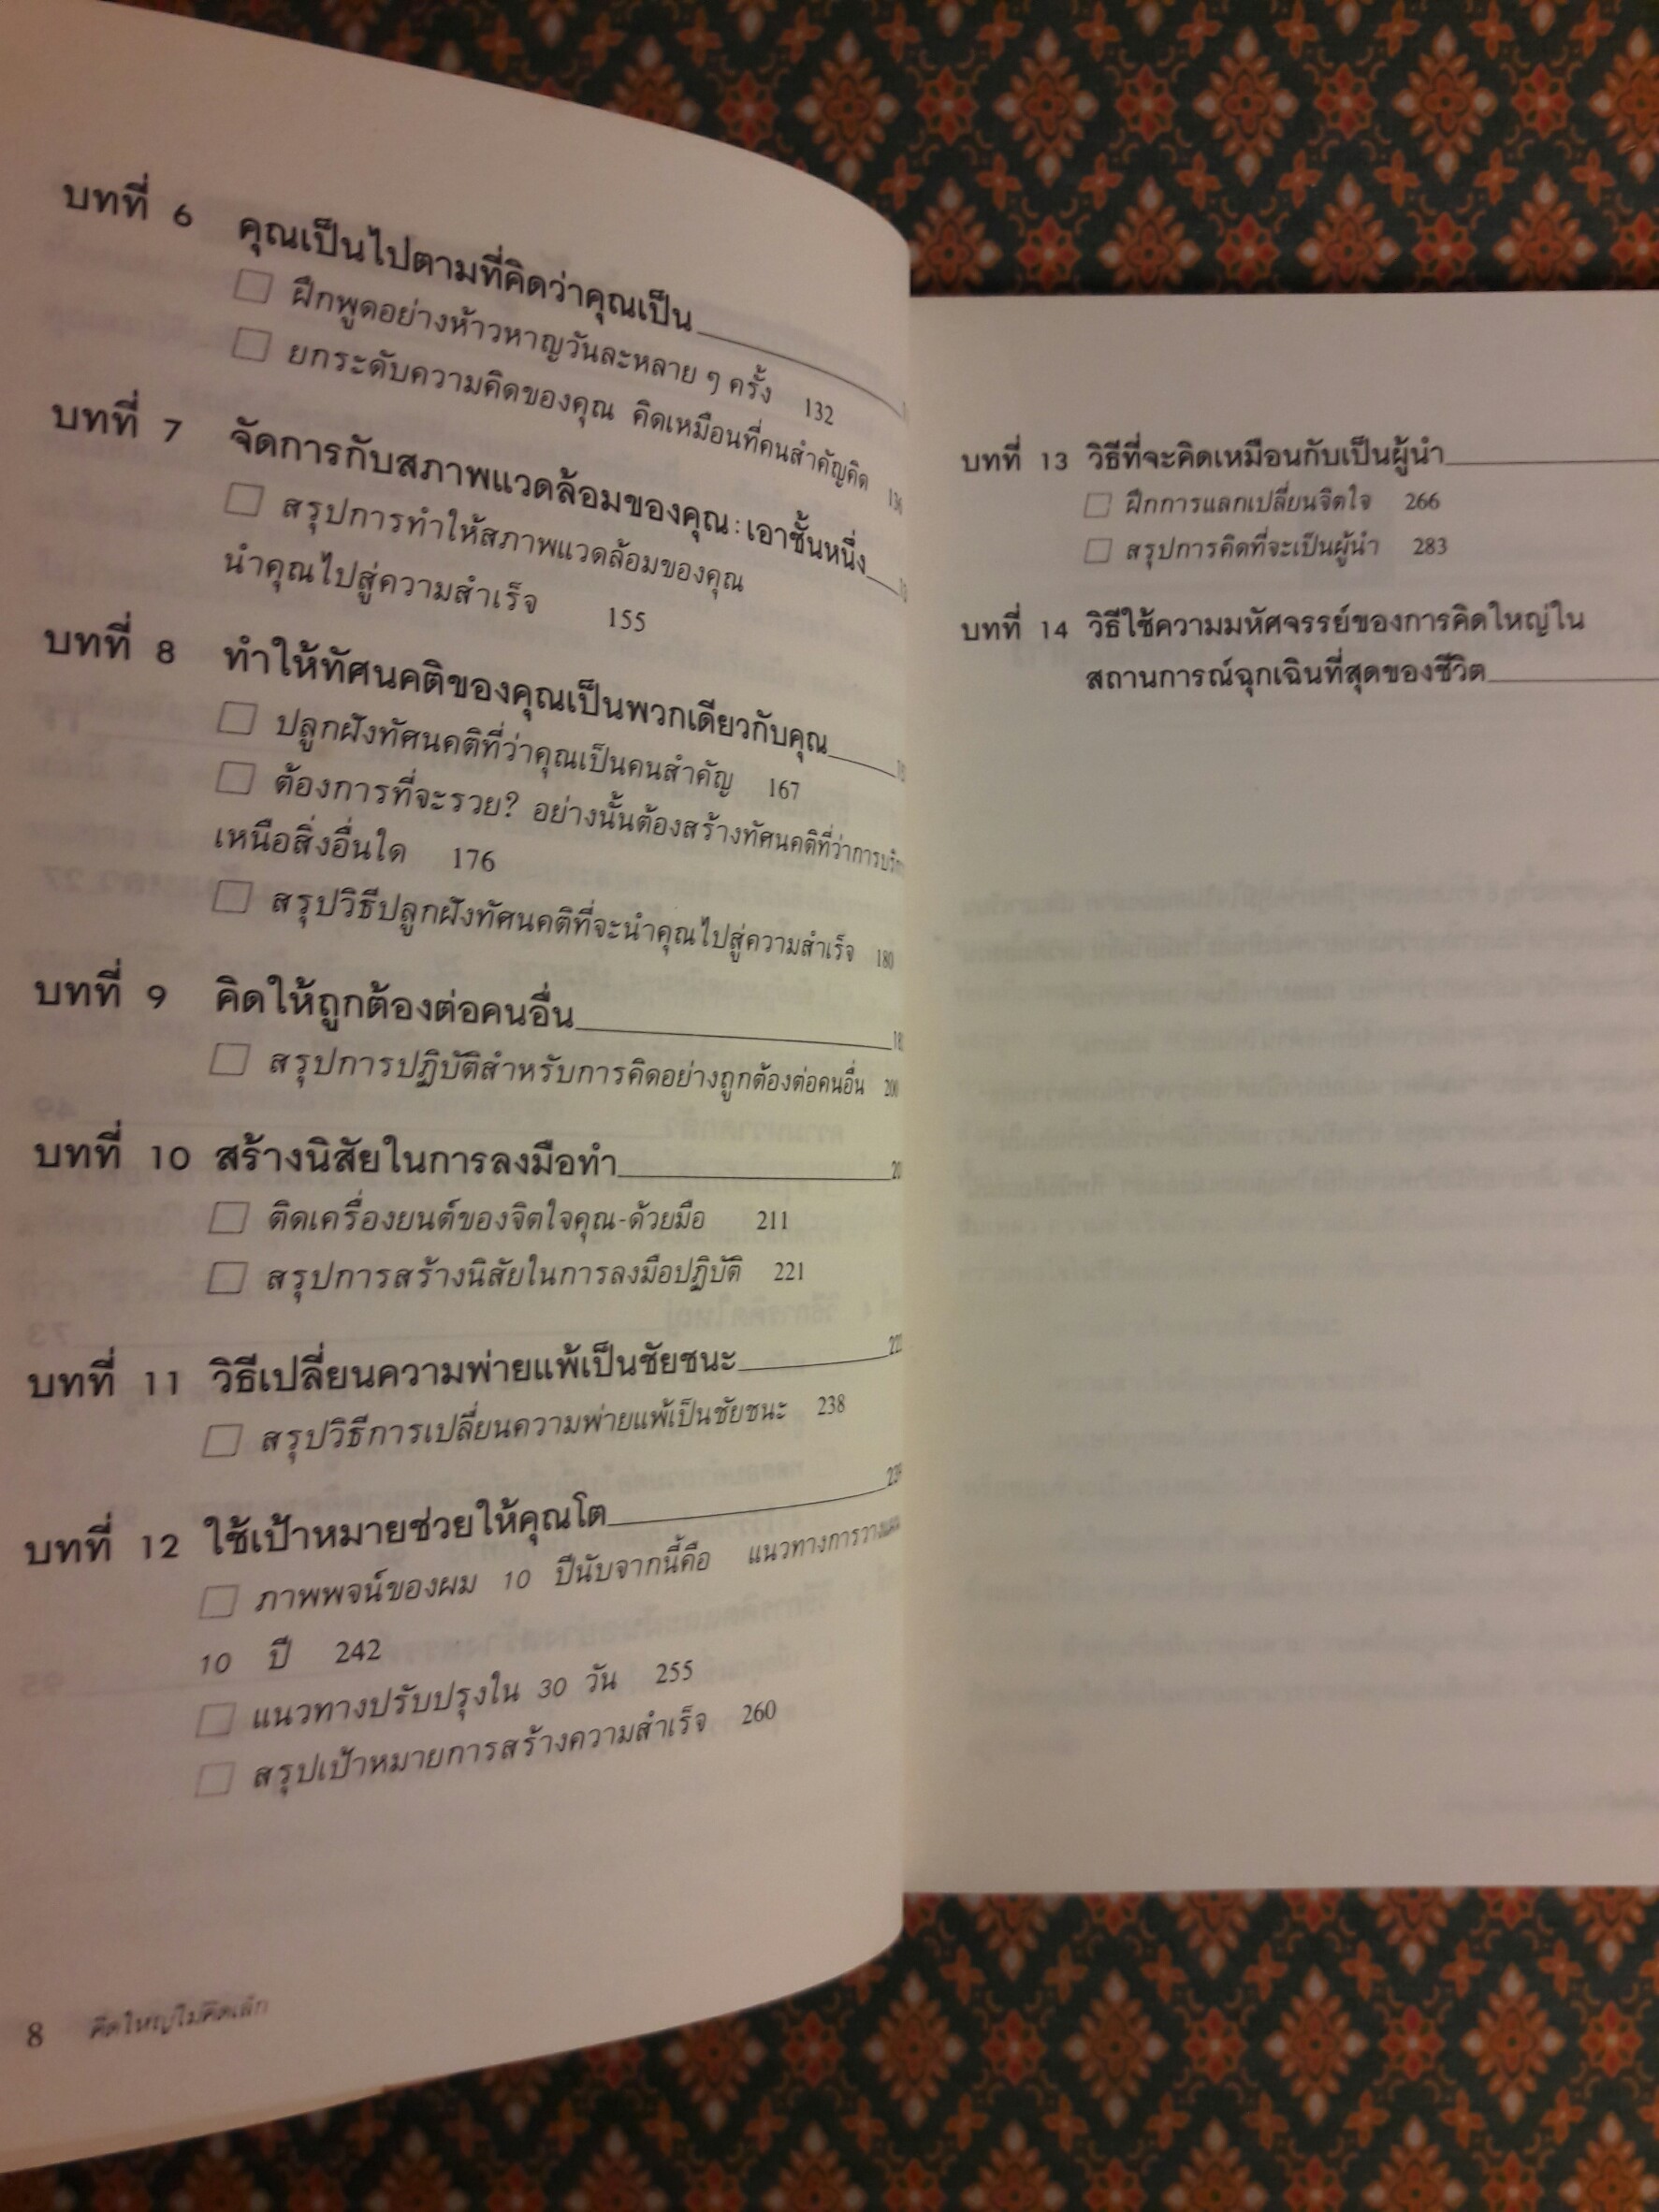 บทที่ 6 คุณเป็นไปตามที่คิดว่าคุณเป็น
ฝึกพูดอย่างห้าวหาญวันละหลาย ๆ ครั้ง 132
ยกระดับความคิดของคุณ คิดเหมือนที่คนสำคัญคิด 136
บทที่ 7 จัดการกับสภาพแวดล้อมของคุณ : เอาชั้นหนึ่ง
สรุปการทำให้สภาพแวดล้อมของคุณ
นำคุณไปสู่ความสำเร็จ 155
บทที่ 8 ทำให้ทัศนคติของคุณเป็นพวกเดียวกับคุณ
ปลูกฝังทัศนคติที่ว่าคุณเป็นคนสำคัญ 167
ต้องการที่จะรวย? อย่างนั้นต้องสร้างทัศนคติที่ว่าการ
เหนือสิ่งอื่นใด 176
สรุปวิธีปลูกฝังทัศนคติที่จะนำคุณไปสู่ความสำเร็จ 180
บทที่ 9 คิดให้ถูกต้องต่อคนอื่น
สรุปการปฏิบัติสำหรับการคิดอย่างถูกต้องต่อคนอื่น 200
บทที่ 10 สร้างนิสัยในการลงมือทำ
ติดเครื่องยนต์ของจิตใจคุณ-ด้วยมือ 211
สรุปการสร้างนิสัยในการลงมือปฏิบัติ 221
บทที่ 11 วิธีเปลี่ยนความพ่ายแพ้เป็นชัยชนะ
สรุปวิธีการเปลี่ยนความพ่ายแพ้เป็นชัยชนะ 238
บทที่ 12 ใช้เป้าหมายช่วยให้คุณโต
ภาพพจน์ของผม 10 ปีนับจากนี้คือ แนวทางการวางแผน
10 ปี 242
แนวทางปรับปรุงใน 30 วัน 255
สรุปเป้าหมายการสร้างความสำเร็จ 260
8 คิดใหญ่ไม่คิดเล็ก
บทที่ 13 วิธีที่จะคิดเหมือนกับเป็นผู้นำ
ฝึกการแลกเปลี่ยนจิตใจ 266
สรุปการคิดที่จะเป็นผู้นำ 283
บทที่ 14 วิธีใช้ความมหัศจรรย์ของการคิดใหญ่ใน
สถานการณ์ฉุกเฉินที่สุดของชีวิต